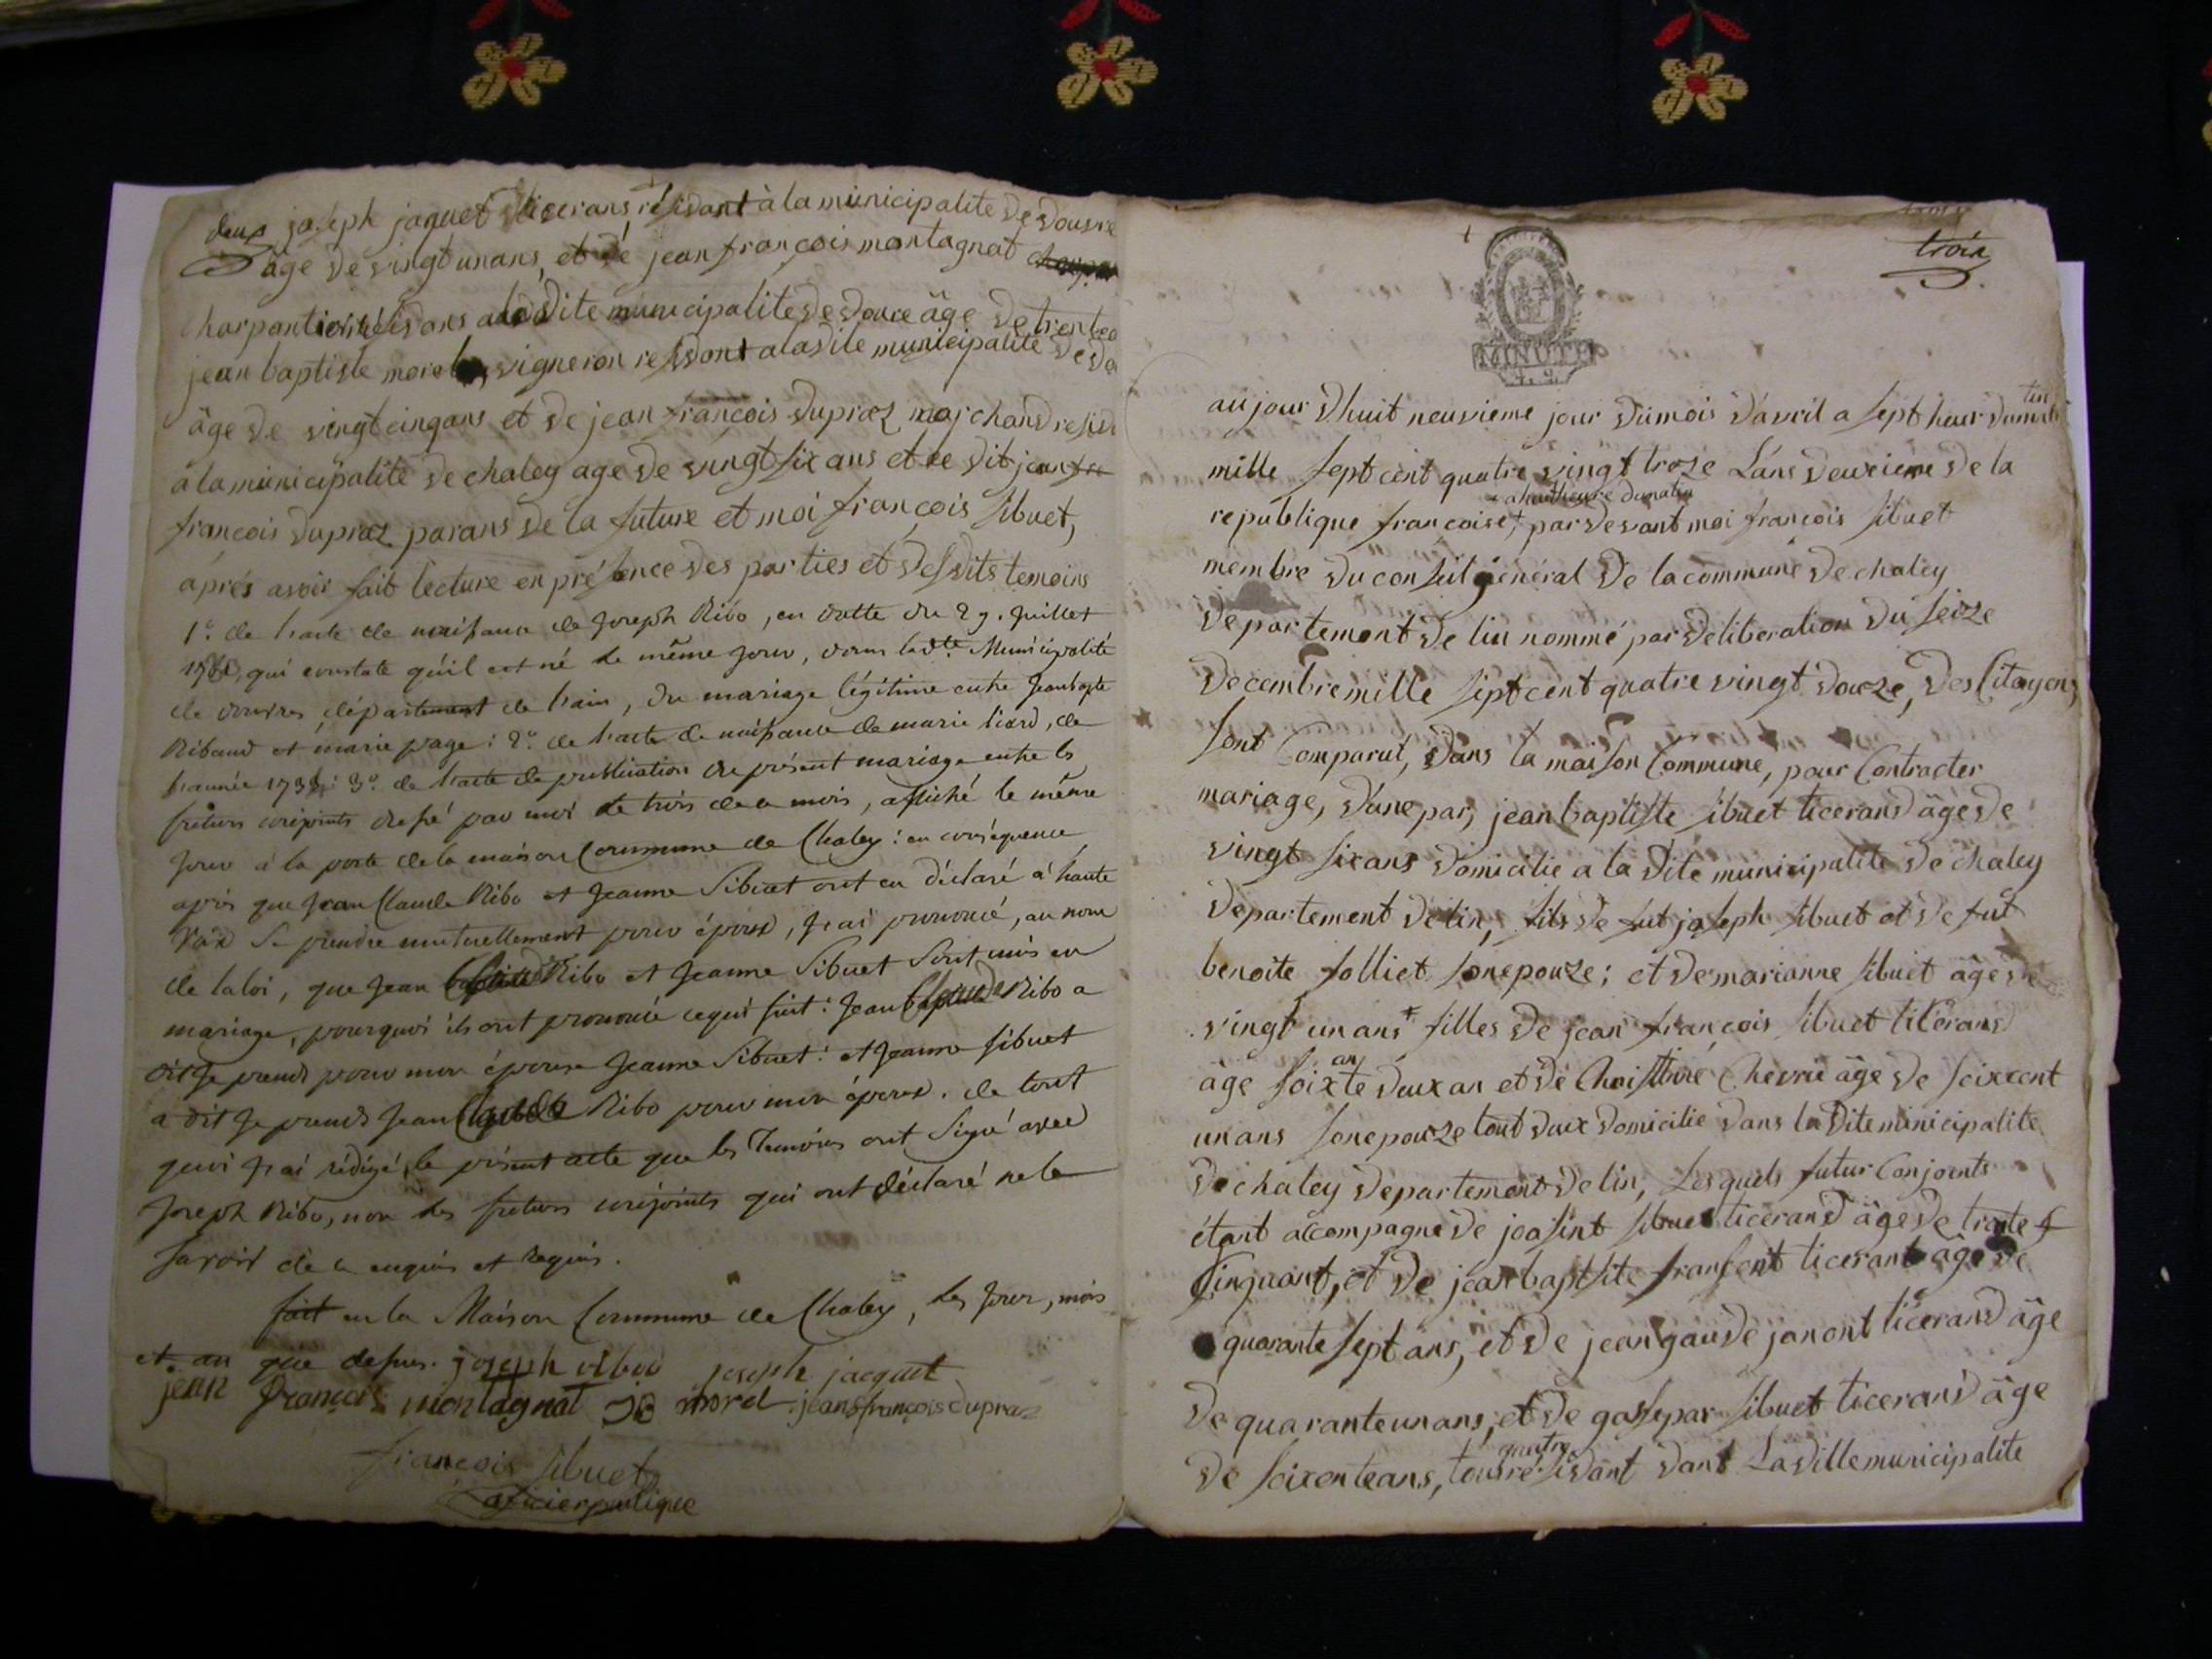 deux
joseph jaquet ticerans, résidant à la municipalite de douvre
âge de vingt un ans, et de jean françois montagnat
charpantier résidans a la ditte municipalite de douvre âge de trente
jean baptiste morel, vigneron residant a la dite municipalité de do
âge de vingt cinq ans et de jean françois dupraz marchand resid
a la municipalité de chaley age de vingt six ans et le dit jean fra
françois dupraz parans de la future et moi françois sibuet,
aprés avoir fait lecture en présence des parties et desdits temoins
1.° de l'acte de naissance de Joseph Ribo, en datte du 29. Juillet
qui constate qu'il est né le même jour, dans la dte. Municipalité
de douvres département de l'ain, du mariage légitime entre Jean bapte
Ribaud et marie page: 2.° de l'acte de naissance de marie liard, de
l'année 3.° de l'acte de publication du présent mariage entre les
futurs conjoints dressé par moi le trois de ce mois, affiché le même
jour à la porte de la maison Commune de Chaley: en conséquence
après que Jean Claude Ribo et Jeanne Sibuet ont eu déclaré à haute
voix se prendre mutuellement pour époux, j'ai prononcé, au nom
de la loi, que Jean Claude Ribo et Jeanne Sibuet sont unis en
mariage, pourquoi ils ont prononcé ce qui suit: Jean Claude Ribo a
dit je prends pour mon épouse Jeanne Sibuet: et Jeanne sibuet
a dit je prends Jean Claude Ribo pour mon époux. de tout
quoi j'ai rédigé le présent acte que les Temoins ont signé avec
Joseph Ribo, non les futurs conjoints qui ont déclaré ne le
savoir de ce enquis et requis.
fait en la Maison Commune de Chaley, les jour, mois
et an que dessus. joseph ribou joseph jacquet
jean françois montagnat JB morel jean françois dupraz
françois sibuet
oficier publique
trois
MINUTE
aujourdhuit neuvieme jour du mois d'avril a sept heur du matin
mille sept cent quatre vingt troze L'ans deuxieme de la
a huit heure du matin
republique françoise, par devant moi françois sibuet
membre du conseil général de la commune de chaley
departement de lin nommé par deliberation du seize
decembre mille sept cent quatre vingt douze, des Citoyens
sont Comparut, dans la maison Commune, pour Contracter
mariage, d'une par, jean baptiste sibuet ticerand âge de
vingt six ans domicilie a la dite municipalité de chaley
departement de lin, fils de fut joseph sibuet et de fut
benoite folliet son epouze; et de marianne sibuet âge de
vingt un ans filles de jean françois sibuet ticerand
âge soixante deux an et de Chevrie âge de soixcent
un ans son epouze tout deux domicilie dans la dite minicipalite
de chaley departement de lin, Lesquels futur Conjoints
étant accompagné de joasint sibuet ticerand âge de trante
Cinquant, et de jean baptiste fransent ticerant âge de
quarante sept ans, et de jean gaude janont ticerand âge
de quarante un ans, et de gaspar sibuet ticerand âge
quatre
de soixenteans, tous résidant dant La ditte municipalite